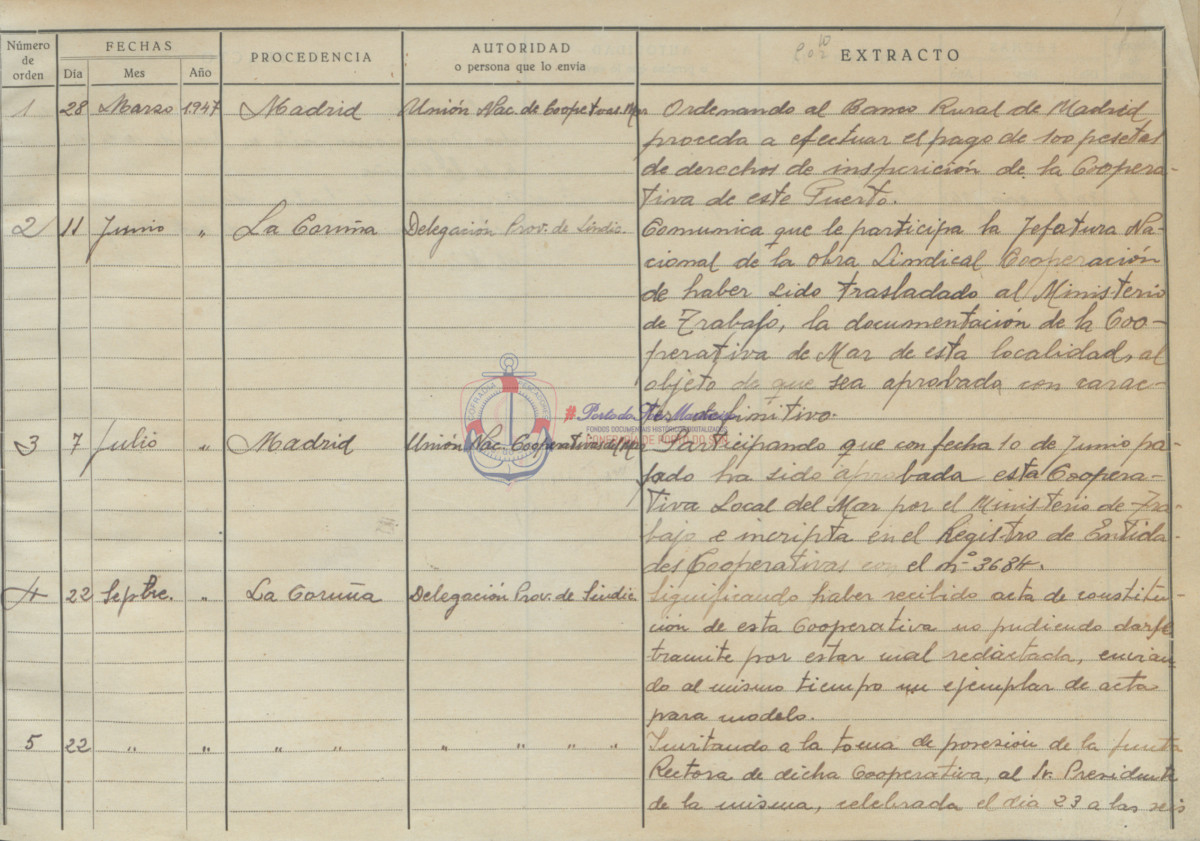 Número de orden
FECHAS
Día Mes Año
PROCEDENCIA
AUTORIDAD
o persona que lo envía
EXTRACTO
1 28 Marzo 1.947 Madrid Unión Nac. de Coopetvas. Mar Ordenando al Banco Rural de Madrid
proceda a efectuar el pago de 100 pesetas
de derechos de insprición de la Coopera-
tiva de este Puerto.
2 11 Junio " La Coruña Delegación Prov. de Sindic. Comunica que le participa la Jefatura Na-
cional de la Obra Sindical Cooperación
de haber sido trasladado al Ministerio
de Trabajo, la documentación de la Coo-
perativa de Mar de esta localidad, al
objeto de que sea aprobada con carac-
ter definitivo.
3 7 Julio " Madrid Unión Nac. Cooperativas del Mar Participando que con fecha 10 de Junio pa-
sado ha sido aprobada esta Coopera-
tiva Local del Mar por el Ministerio de Tra-
bajo e incripta en el Registro de Entida-
des Cooperativas con el nº 3684.
4 22 Sepbre. " La Coruña Delegación Prov. de Sindic. Significando haber recibido acta de constitu-
ción de esta Cooperativa no pudiendo darse
tramite por estar mal redactada, envian-
do al mismo tiempo un ejemplar de acta
para modelo.
5 22 " " " " " " " " Invitando a la toma de posesión de la junta
Rectora de dicha Cooperativa, al Sr. Presidente
de la misma, celebrada el dia 23 a las seis
COFRADIA PESCADORES
#PortodoSonMardeiro
FONDOS DOCUMENTAIS HISTÓRICOS DIXITALIZADOS
CONFRARÍA DE PORTO DO SON